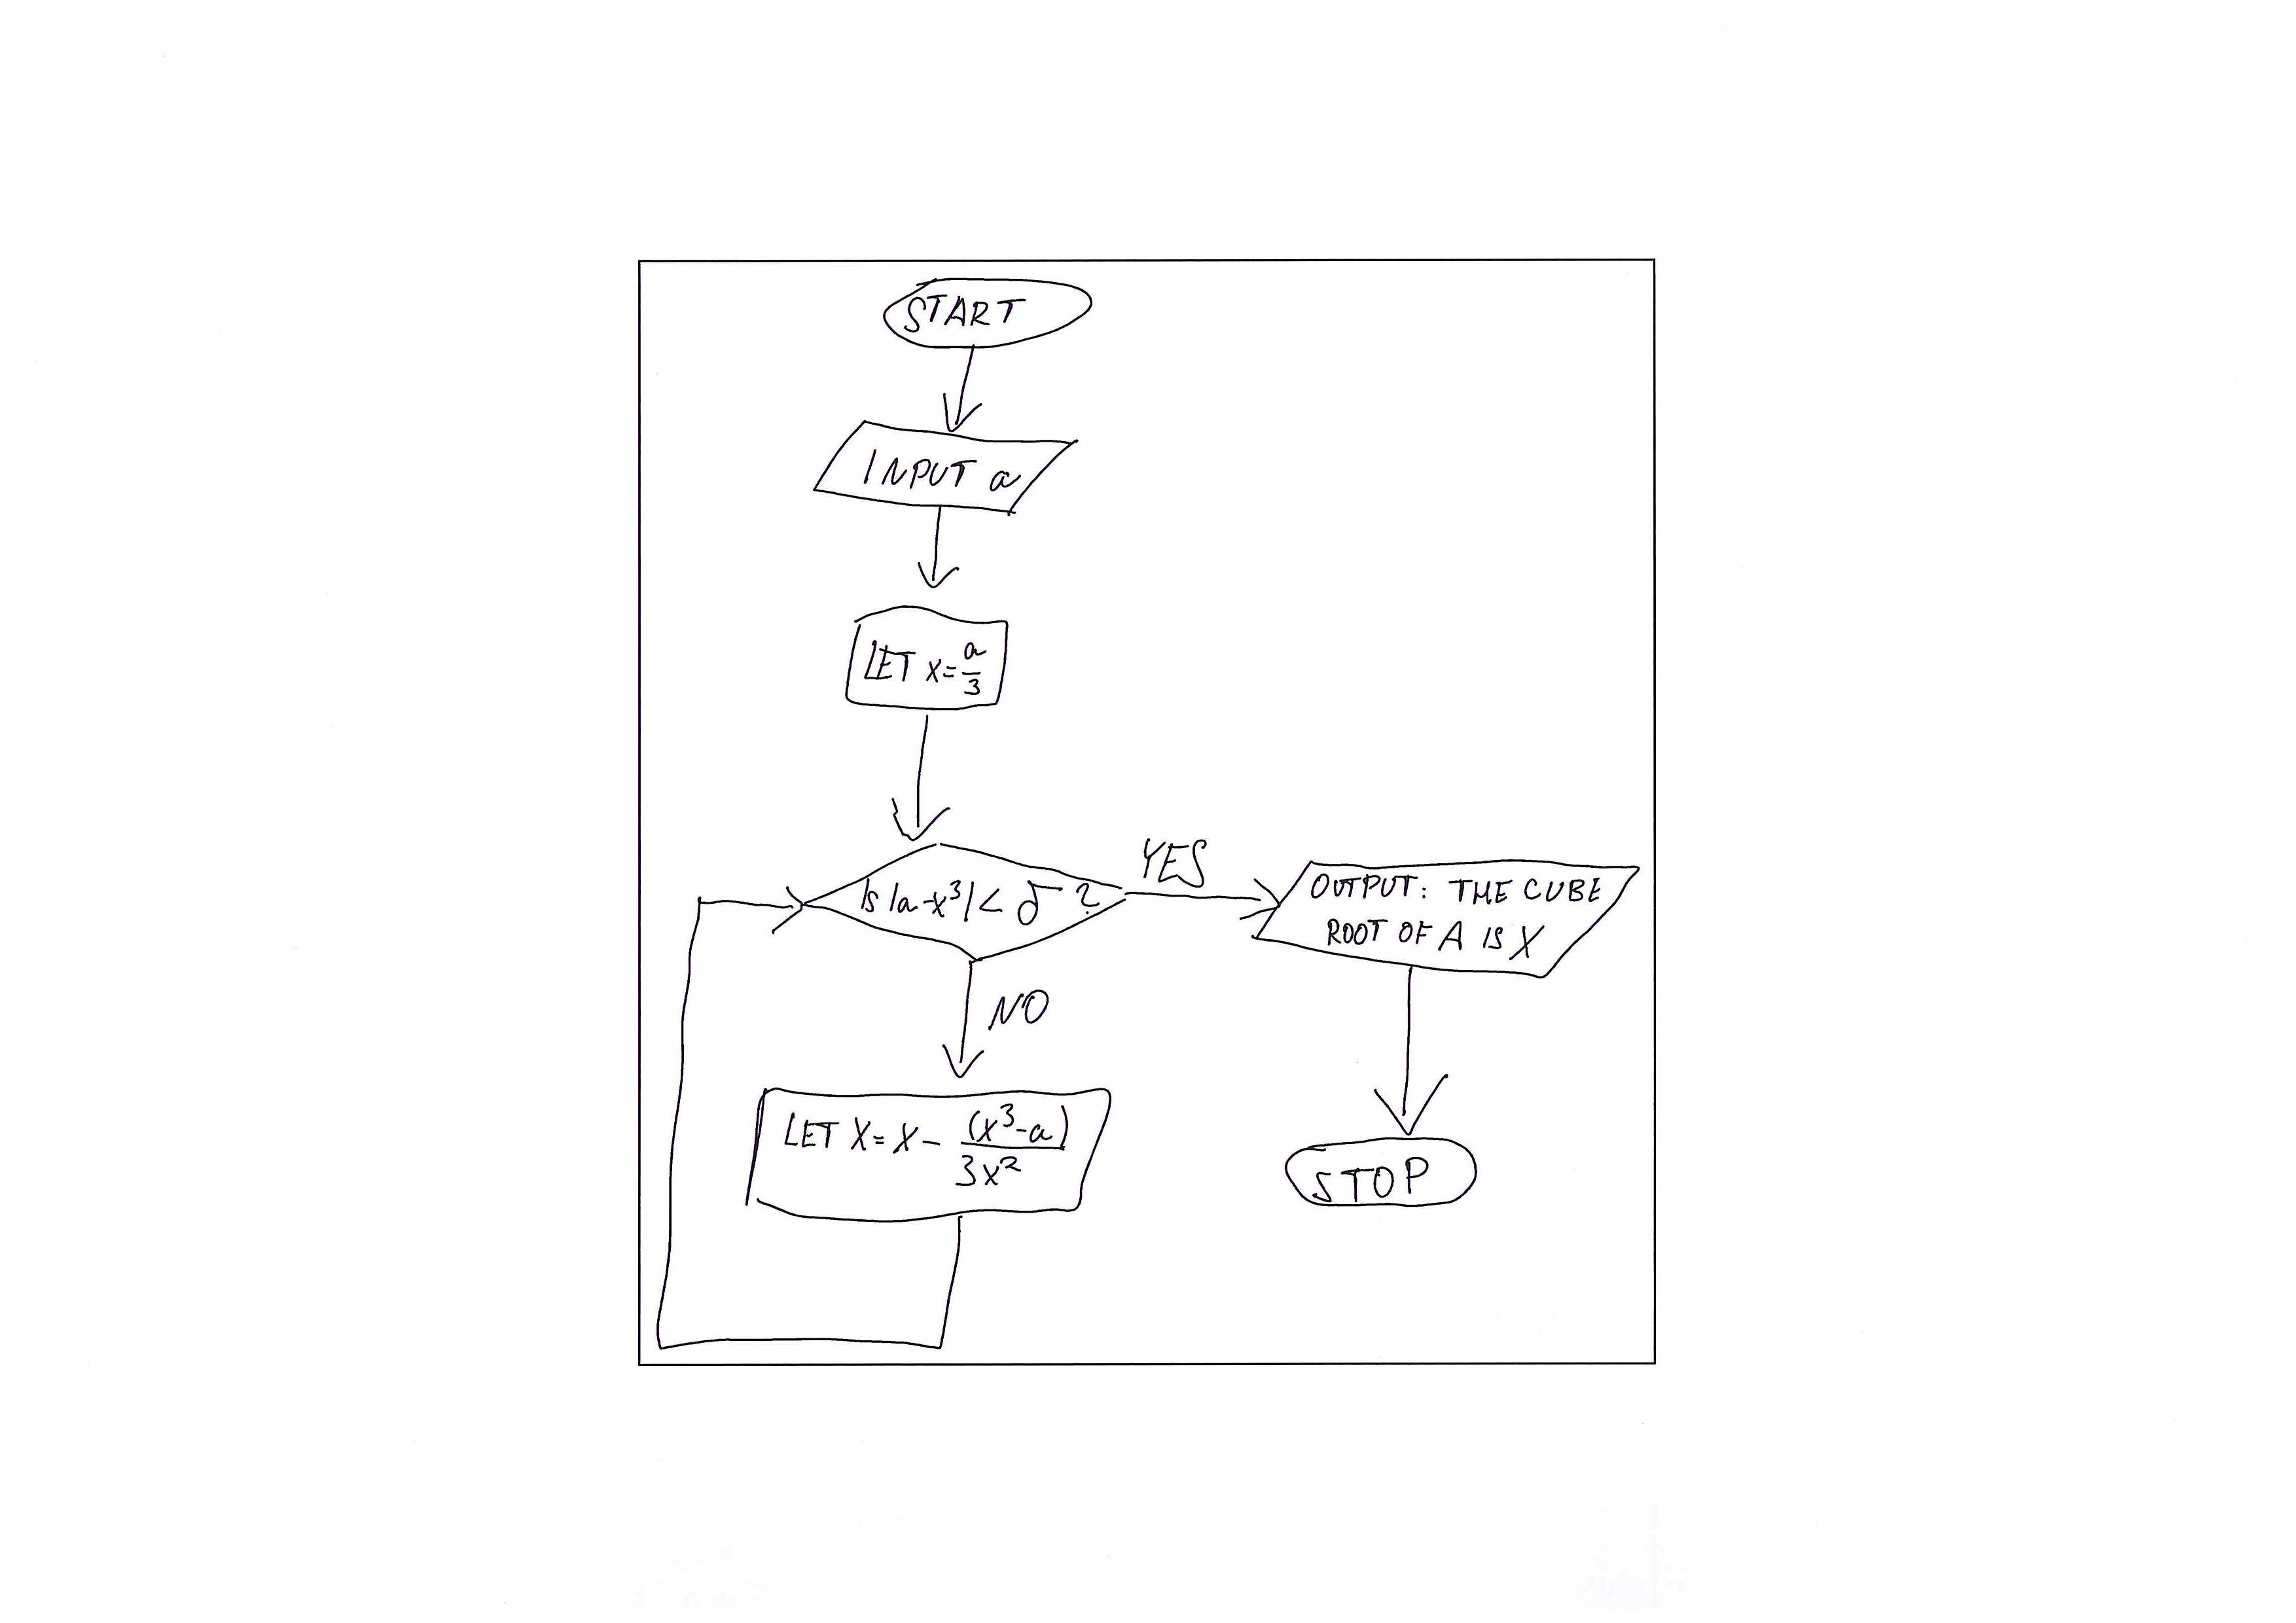 START
INPUT a
LET x = a/3
Is |a - x³| < δ ?
YES
OUTPUT: THE CUBE
ROOT OF A IS X
NO
LET X = X - (x³ - a)/3x²
STOP